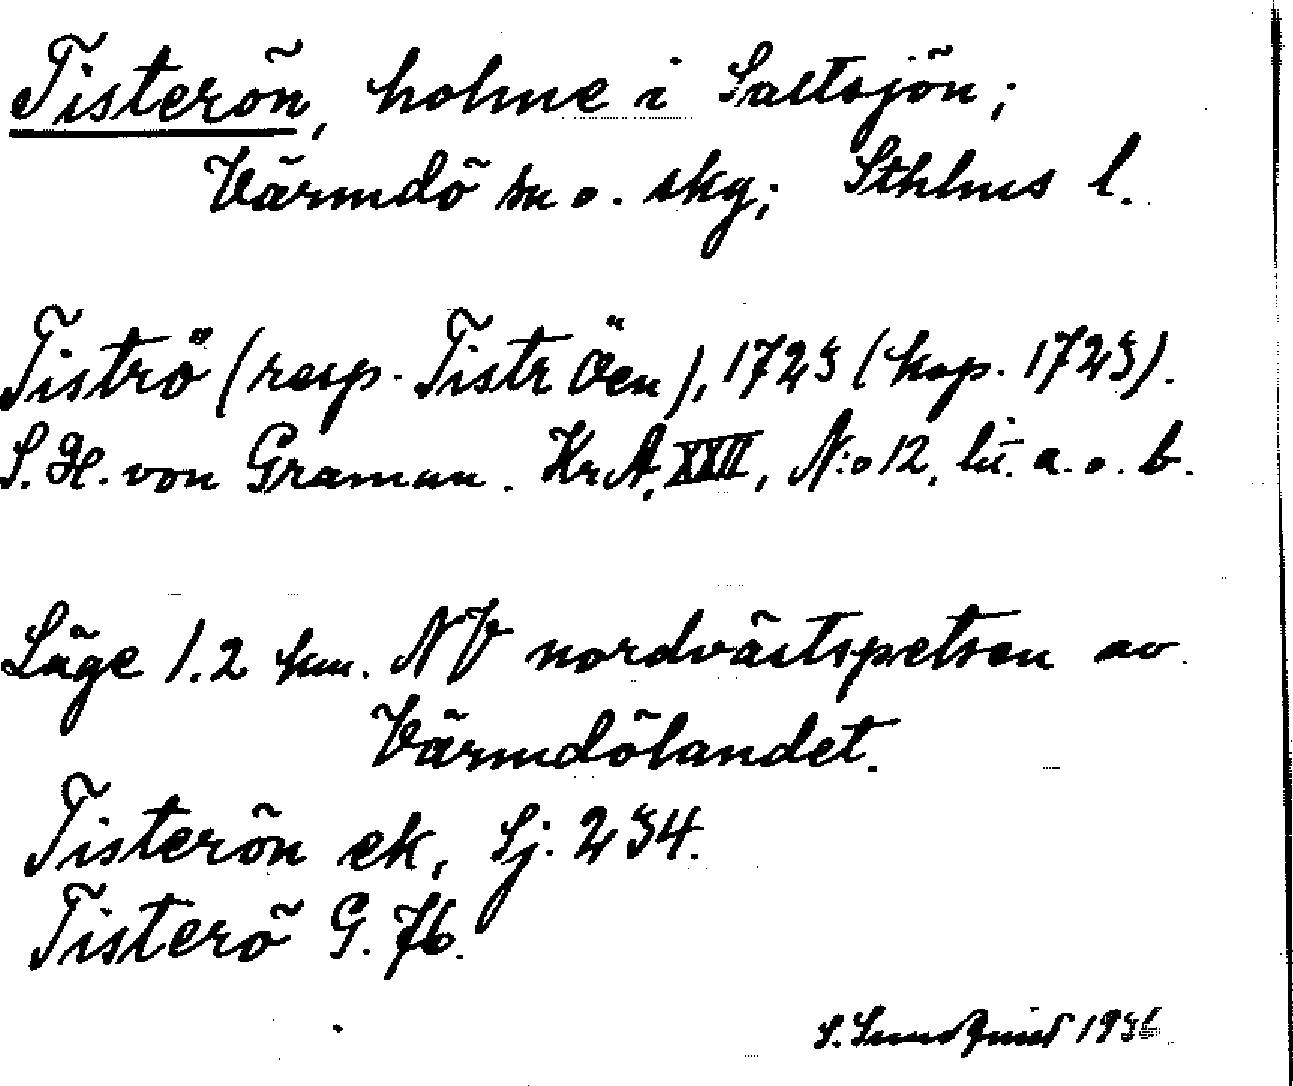 Tisterön, holme i Saltsjön;
Värmdö sn o. skg; Sthlms l.
Tiströ (resp. Tistr Öen), 1723 (kop. 1723).
S. H. von Graman. KrA, XXII, N:o 12, lit. a. o. b.
Läge 1.2 km. NV nordvästspetsen av
Värmdölandet.
Tisterön ek, Sj. 234.
Tisterö G. 76.
S. Sundquist 1936